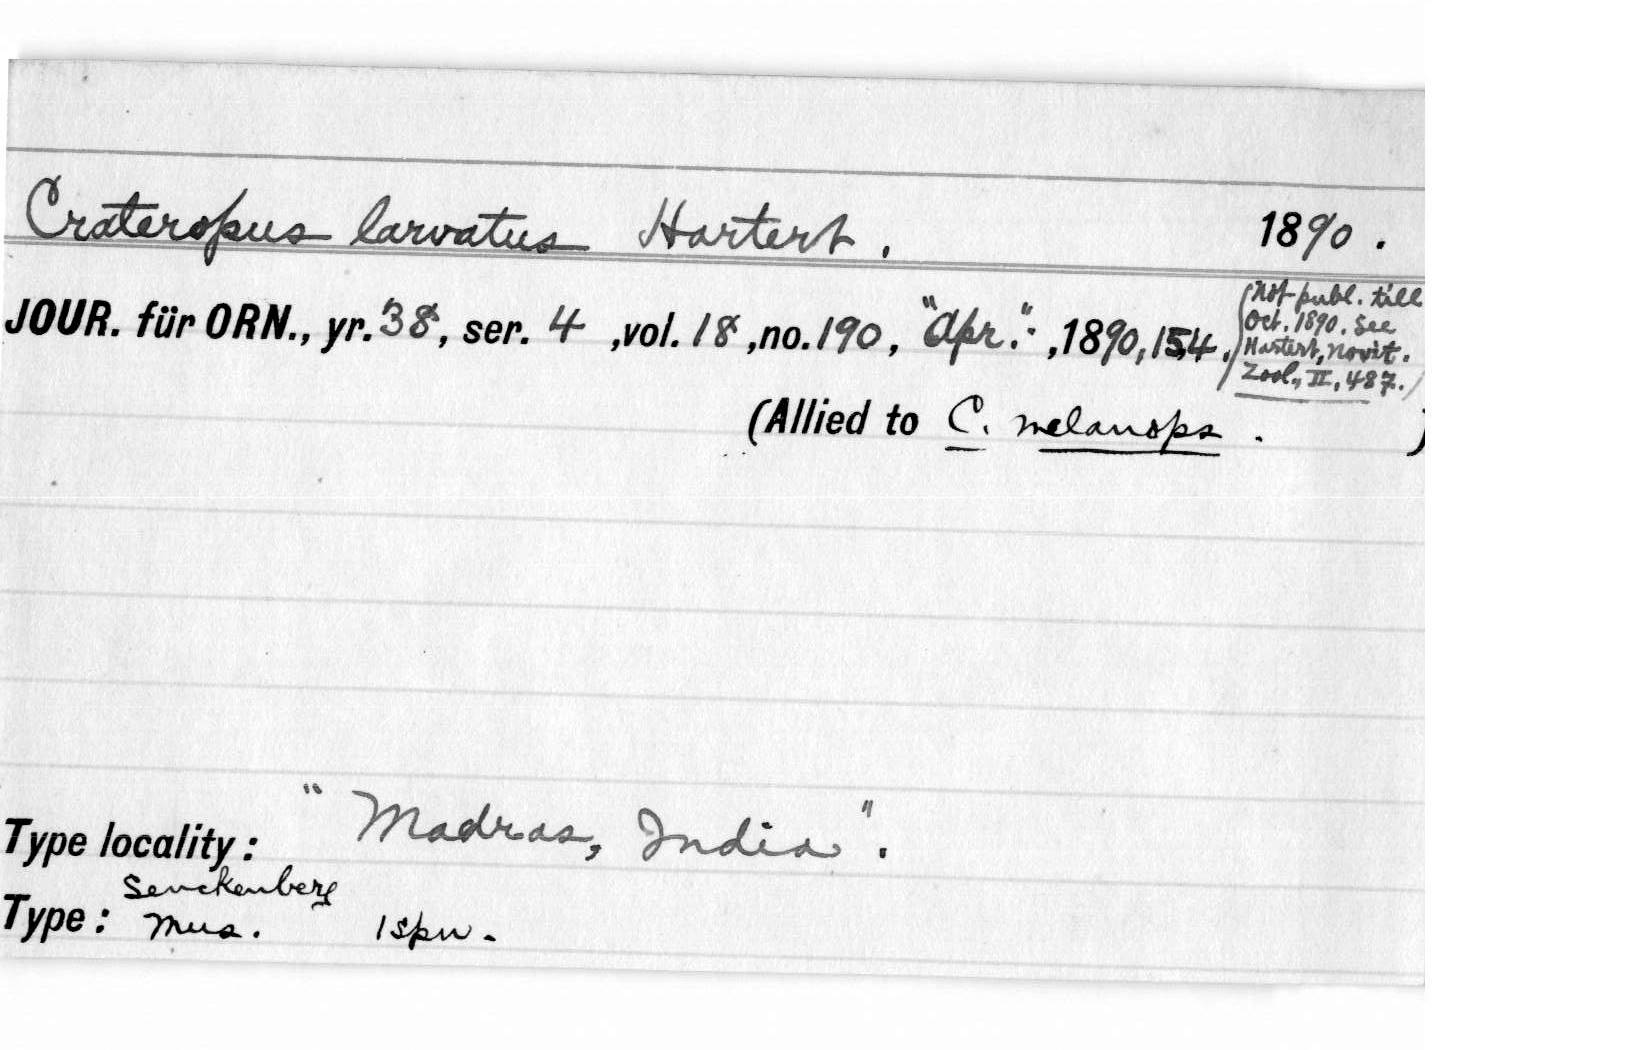 Crateropus larvatus Hartert. 1890.
JOUR. für ORN., yr. 38, ser. 4 ,vol. 18 ,no. 190, "Apr.". ,1890, 154.
(Not publ. till
Oct. 1890. See
Hartert, Novit.
Zool., II, 487.)
(Allied to C. melanops. )
Type locality: "Madras, India".
Senckenberg
Type: Mus. 1 spn.